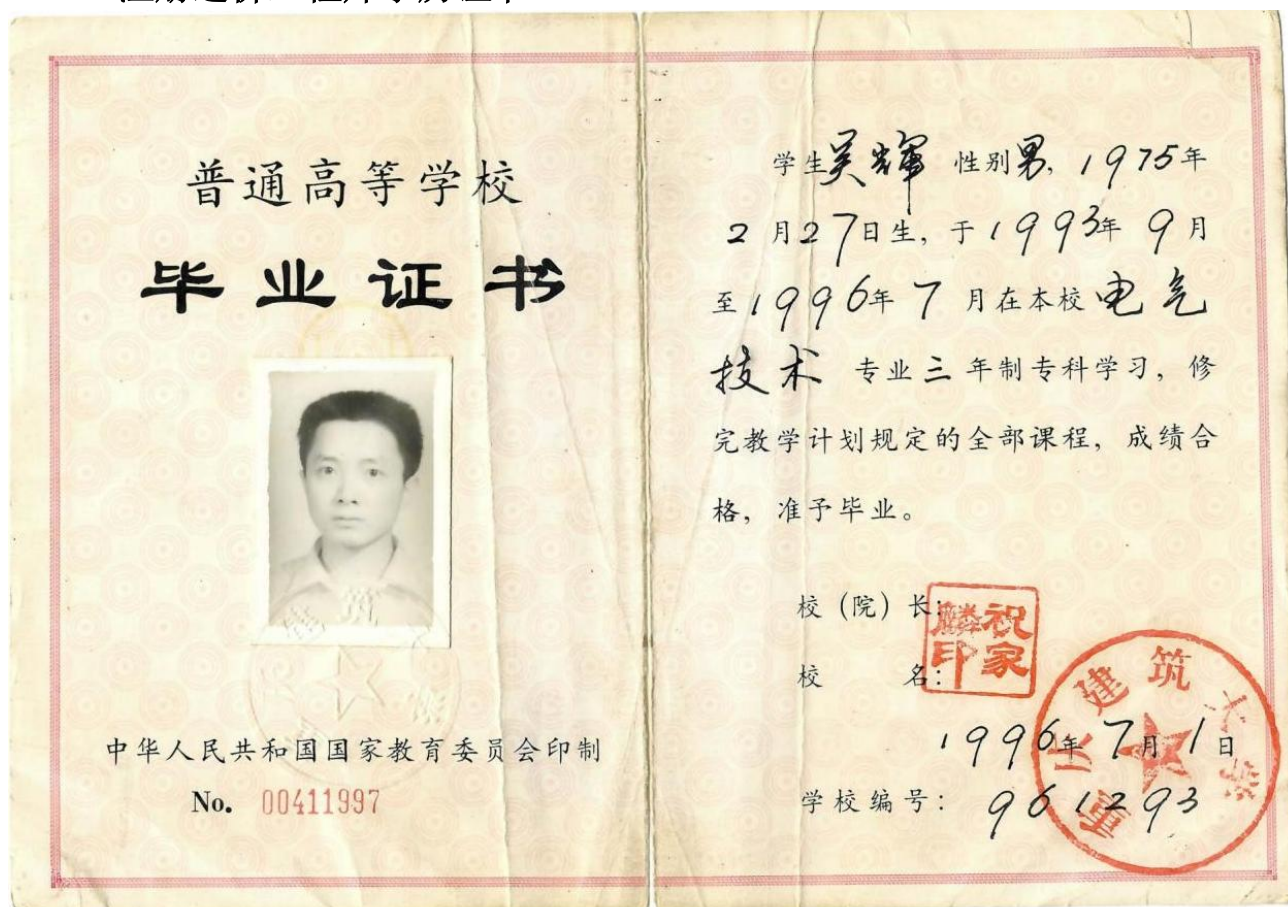 普通高等学校
毕业证书
中华人民共和国国家教育委员会印制
No. 00411997
学生吴辉 性别男, 1975年
2月27日生, 于1993年9月
至1996年7月在本校电气
技术 专业三年制专科学习, 修
完教学计划规定的全部课程, 成绩合
格, 准予毕业。
校(院)长:
祝家麟印
校 名:
重庆建筑大学
1996年7月1日
学校编号: 961293